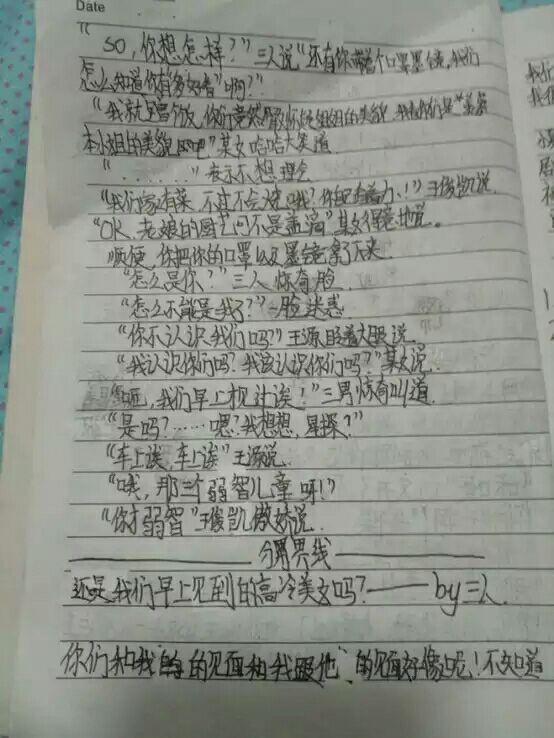 Date
"
so，你想怎样？"三人说"还有你带着个口罩墨镜，我们
怎么知道你有多好看"啊？"
"我就留个饭，你们竟然
本小姐的美貌吧"某女哈哈大笑道
"………"表示不想理会
"我们家有菜，不过不会烧哦？你自己看着办！"王俊凯说
"OK，老娘的厨艺可不是盖滴"某女得意地说。
顺便，你把你的口罩以及墨镜拿了下来
"怎么是你？"三人惊奇脸
"怎么不能是我了？"一脸迷惑
"你不认识我们吗？"王源眨着大眼说
"我认识你们吗？我该认识你们吗？"某女说
"呃，我们早上相过诶！"三男惊奇叫道
"是吗？……嗯？我想想，星探？"
"车上诶，车上诶"王源说
"哦，那三个弱智儿童呀！"
"你才弱智"王俊凯傲娇说
分界线
还是我们早上见到的高冷美女吗？——by三人
你们和我的的见面和我跟他 的见面好像呢！不知道